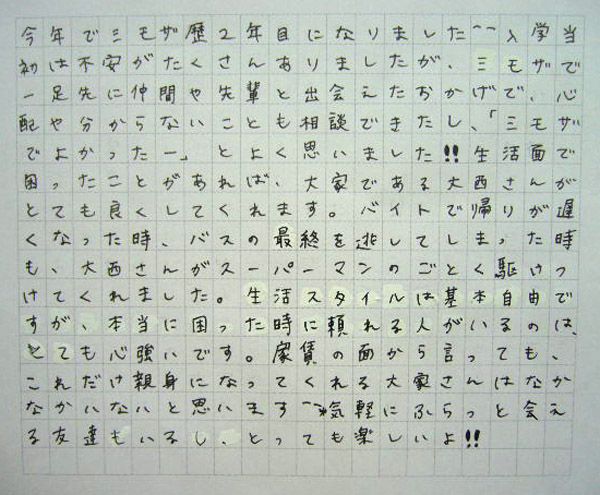 今年でミモザ歴2年目になりました^^入学当
初は不安がたくさんありましたが、ミモザで
一足先に仲間や先輩と出会えたおかげで、心
配や分からないことも相談できたし、「ミモザ
でよかったー」とよく思いました!!生活面で
困ったことがあれば、大家である大西さんが
とても良くしてくれます。バイトで帰りが遅
くなった時、バスの最終を逃してしまった時
も、大西さんがスーパーマンのごとく駆けつ
けてくれました。生活スタイルは基本自由で
すが、本当に困った時に頼れる人がいるのは、
とても心強いです。家賃の面から言っても、
これだけ親身になってくれる大家さんはなか
なかいないと思います^^気軽にふらっと会え
る友達もいるし、とっても楽しいよ!!